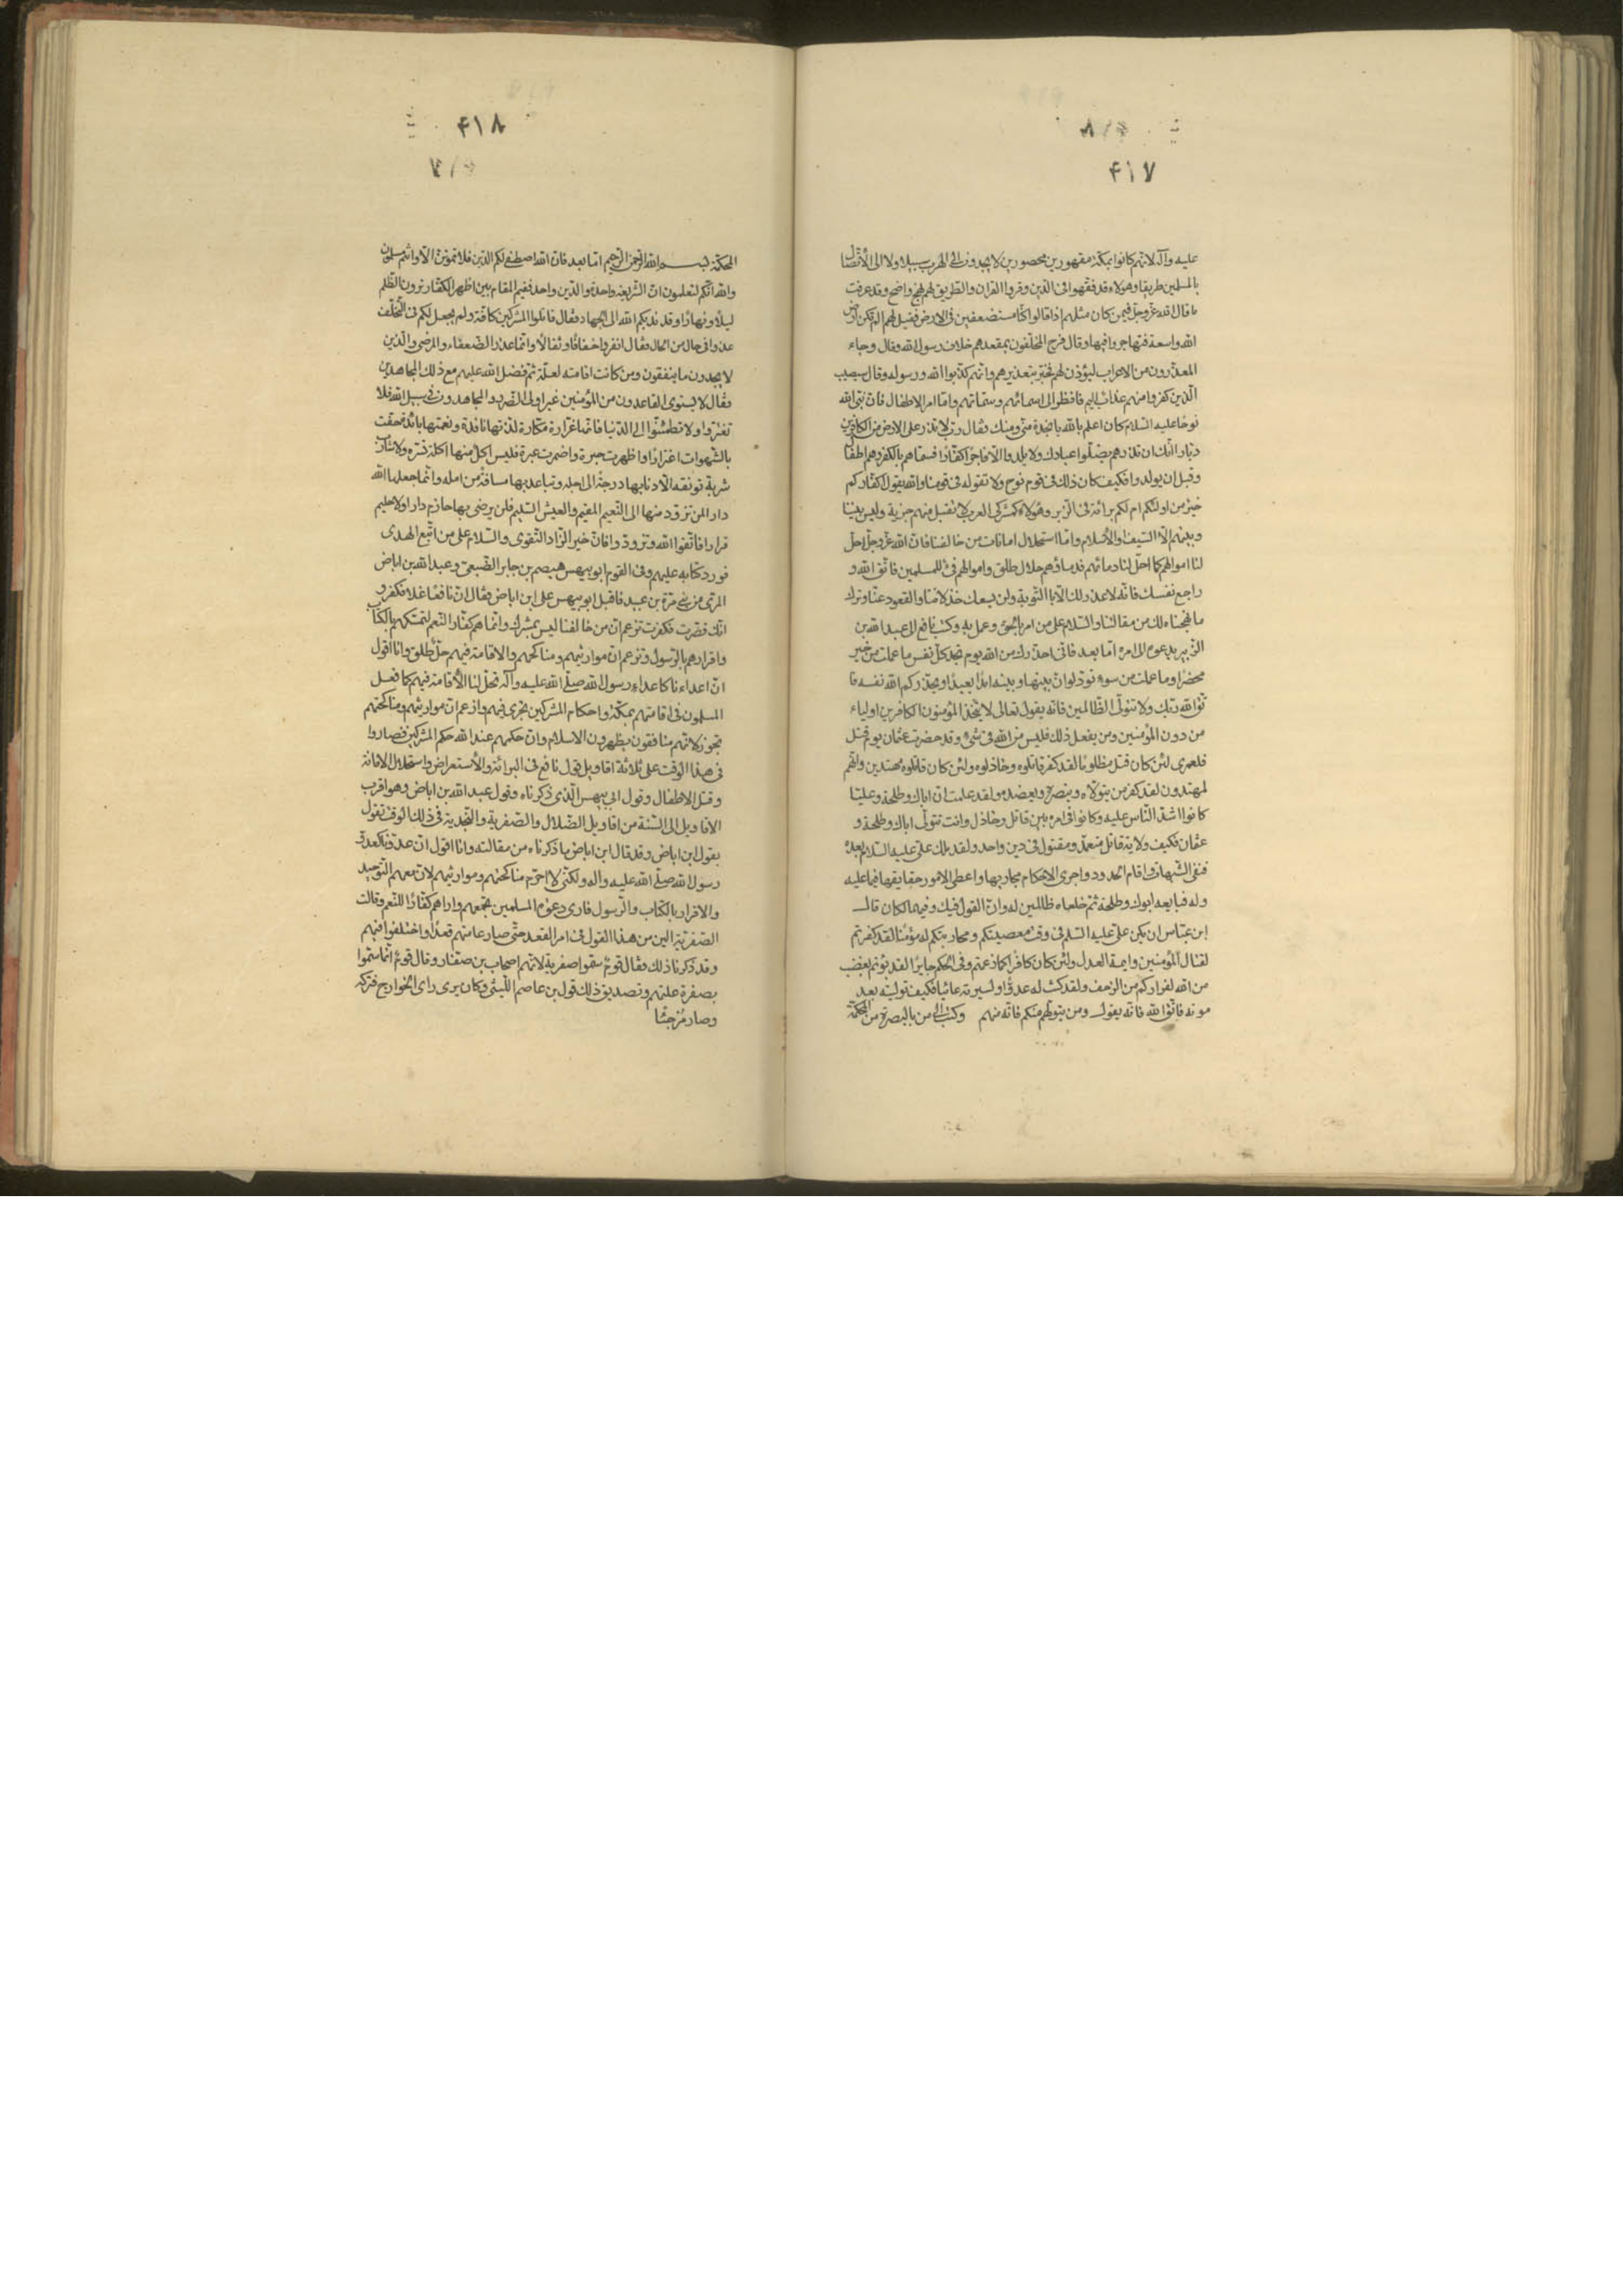 ۴۱۷
عليه وآله لانهم كانوا بمكة مقهورين محصورين لا يجدون الى الهرب سبيلا ولا الى الأتصال
بالمسلمين طريقا وهؤلاء قد فقهوا فى الدين وقروا القران والطريق لهم نهج واضح وقد عرفت
ما قال الله عز وجل فيمن كان مثلهم اذ قالوا كنا مستضعفين فى الارض فقيل لهم الم تكن ارض
الله واسعة فتهاجروا فيها وقال فرح المخلفون بمقعدهم خلاف رسول الله وقال وجاء
المعذرون من الاعراب ليؤذن لهم فخبر بتعذيرهم وانهم كذبوا الله ورسوله وقال سيصيب
الذين كفروا منهم عذاب اليم فانظر الى اسمائهم وسماتهم واما امر الاطفال فان نبى الله
نوحا عليه السلام كان اعلم بالله يا نجدة منى ومنك فقال رب لا تذر على الارض من الكافرين
ديارا انك ان تذرهم يضلوا عبادك ولا يلدوا الا فاجرا كفارا فسماهم بالكفر وهم اطفال
وقبل ان يولدوا فكيف كان ذلك فى قوم نوح ولا تقوله فى قومنا والله يقول اكفاركم
خير من اولئكم ام لكم برائة فى الزبر وهؤلاء كمشركى العرب لا تقبل منهم جزية وليس بيننا
وبينهم الا السيف او الأسلام واما استحلال امانات من خالفنا فان الله عز وجل احل
لنا اموالهم كما احل لنا دمائهم فدماؤهم حلال طلق واموالهم فئ للمسلمين فاتق الله و
راجع نفسك فانه لا عذر لك الا بالتوبة ولن يسعك خذلاننا والقعود عنا وترك
ما نهجناه لك من مقالتنا والسلام على من اقر بالحق وعمل به وكتب نافع الى عبد الله بن
الزبير يدعوه الى امره اما بعد فانى احذرك من الله يوم تجد كل نفس ما عملت من خير
محضرا وما عملت من سوء تود لو ان بينها وبينه امدا بعيدا ويحذركم الله نفسه فا
تق الله ربك ولا تتولى الظالمين فانه يقول تعالى لا يتخذ المؤمنون الكافرين اولياء
من دون المؤمنين ومن يفعل ذلك فليس من الله فى شئ وقد حضرت عثمان يوم قتل
فلعمرى لئن كان قتل مظلوما لقد كفر قاتلوه وخاذلوه ولئن كان قاتلوه مهتدين وانهم
لمهتدون لقد كفر من يتولاه وينصره ويعضده ولقد علمت ان اباك وطلحة وعليا
كانوا اشد الناس عليه وكانوا فى امره بين قاتل وخاذل وانت تتولى اباك وطلحة و
عثمان فكيف ولاية قاتل متعمد ومقتول فى دين واحد ولقد ملك على عليه السلام بعده
فنفى الشبهات واقام الحدود واجرى الاحكام مجاريها واعطى الامور حقايقها فيما عليه
وله فبايعه ابوك وطلحة ثم خلعاه ظالمين له وان القول فيك وفيهما لكما قال
ابن عباس ان يكن على عليه السلم فى وقت معصيتكم ومحاربتكم له مؤمنا لقد كفرتم
لقتال المؤمنين وايمة العدل ولئن كان كافرا كما زعمتم وفى الحكم جايرا لقد بؤتم بغضب
من الله لفراركم من الزحف ولقد كنت له عدوا ولسيرته عائبا فكيف توليته بعد
موته فاتق الله فانه يقول ومن يتولهم منكم فانه منهم وكتب الى من بالبصرة من المحكمة
۴۱۸
المحكمة بسم الله الرحمن الرحيم اما بعد فان الله اصطفى لكم الدين فلا تموتن الا وانتم مسلمون
والله انكم لتعلمون ان الشريعة واحدة والدين واحد ففيم المقام بين اظهر الكفار ترون الظلم
ليلا ونهارا وقد ندبكم الله الى الجهاد فقال قاتلوا المشركين كافة ولم يجعل لكم فى التخلف
عذرا فى حال من الحال فقال انفروا خفافا وثقالا وانما عذر الضعفاء والمرضى والذين
لا يجدون ما ينفقون ومن كانت اقامته لعلة ثم فضل الله عليهم مع ذلك المجاهدين
فقال لا يستوى القاعدون من المؤمنين غير اولى الضرر والمجاهدون فى سبيل الله فلا
تغتروا ولا تطمئنوا الى الدنيا فانها غرارة مكارة لذتها نافدة ونعمتها بائدة حفت
بالشهوات اغترارا واظهرت حبرة واضمرت عبرة فليس اكل منها اكلة تسره ولا شارب
شربة تونقه الا دنا بها درجة الى اجله وتباعد بها مسافة من امله وانما جعلها الله
دار المن تزود منها الى النعيم المقيم والعيش السليم فلن يرضى بها حازم دارا ولا حليم
قرارا فاتقوا الله وتزودوا فان خير الزاد التقوى والسلام على من اتبع الهدى
فورد كتابه عليهم وفى القوم ابو بيهس هيصم بن جابر الضبعى وعبد الله بن اباض
المرى من بنى مرة بن عبيد فاقبل ابو بيهس على ابن اباض فقال ان نافعا غلا فكفر و
انك قصرت فكفرت تزعم ان من خالفنا ليس بمشرك وانما هم كفار النعم لتمسكهم بالكتاب
واقرارهم بالرسول وتزعم ان مواريثهم ومناكحهم والاقامة فيهم حل طلق وانا اقول
ان اعداءنا كاعداء رسول الله صلى الله عليه وآله تحل لنا الأقامة فيهم كما فعل
المسلمون فى اقامتهم بمكة واحكام المشركين تجرى فيهم وازعم ان مواريثهم ومناكحتهم
تجوز لانهم منافقون يظهرون الاسلام وان حكمهم عند الله حكم المشركين فصاروا
فى هذا الوقت على ثلاثة اقاويل قول نافع فى البرائة والأستعراض واستحلال الامانة
وقتل الاطفال وقول ابى بيهس الذى ذكرناه وقول عبد الله بن اباض وهو اقرب
الاقاويل الى السنة من اقاويل الضلال والصفرية والنجدية فى ذلك الوقت تقول
بقول ابن اباض وقد قال ابن اباض ما ذكرناه من مقالته وانا اقول ان عدونا كعدو
رسول الله صلى الله عليه واله ولكنى لا احرم مناكحتهم ومواريثهم لان معهم التوحيد
والاقرار بالكتاب والرسول فارى دعوة المسلمين تجمعهم واراهم كفارا للنعم وقالت
الصفرية الين من هذا القول فى امر القعد حتى صار عامتهم قعدا واختلفوا فيهم
وقد ذكرنا ذلك فقال قوم سموا صفرية لانهم اصحاب بن صفار وقال قوم انما سموا
بصفرة علتهم وتصديق ذلك قول بن عاصم الليثى وكان يرى راى الخوارج فتركه
وصار مرجئا